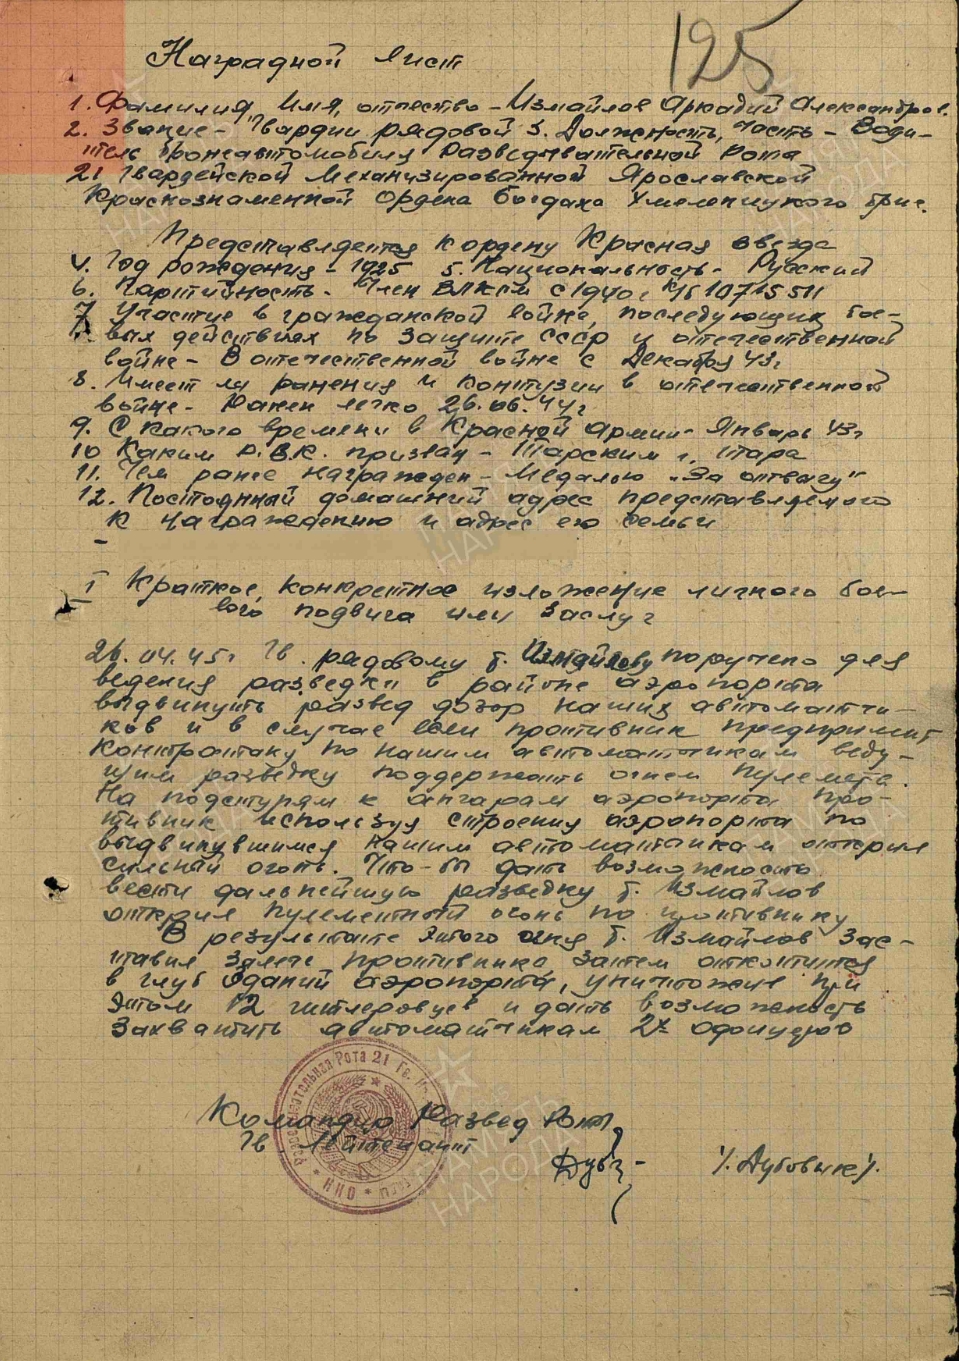 125
Наградной лист
1. Фамилия, Имя, отчество - Измайлов Аркадий Александров.
2. Звание - Гвардии рядовой 3. Должность, часть - Води-
тель бронеавтомобиля Разведывательной Рота
21 Гвардейской Механизированной Ярославской
Краснознаменной Ордена Богдана Хмельницкого бриг.
Представляется к ордену Красная звезда
4. Год рождения - 1925 5. Национальность - Русский
6. Партийность - Член ВЛКСМ с 1940г
7. Участие в гражданской войне, последующих бое-
вых действиях по защите СССР и отечественной
войне - В отечественной войне с Декабря 43г
8. Имеет ли ранения и контузии в отечественной
войне - Ранен легко 26.06.44г
9. С какого времени в Красной Армии - Январь 43г
10 Каким Р.В.К. призван - Тарским г. Тара
11. Чем ранее награжден - Медалью "За отвагу"
12. Постоянный домашний адрес представляемого
к награждению и адрес его семьи
-
I Краткое, конкретное изложение личного бое-
вого подвига или заслуг
26.04.45г Гв. рядовому т. Измайлову поручено для
ведения разведки в районе аэропорта
выдвинуть развед дозор наших автоматчи-
ков и в случае если противник предпримит
контратаку по нашим автоматчикам веду-
щим разведку поддержать огнем пулемета.
На подступям к ангарам аэропорта про-
тивник используя строения аэропорта по
выдвинувшимся нашим автоматчикам открыл
сильный огонь. Что-бы дать возможность
вести дальнейшую разведку т. Измайлов
открыл пулеметный огонь по противнику
В результате этого огня т. Измайлов зас-
тавил залечь противника затем откатится
в глуб зданий аэропорта, уничтожил при
этом 12 гитлеровцев и дать возможность
захватить автоматчикам 2х офицеров
Разведывательная Рота 21 Гв.
НКО
Командир Развед Роты
Гв Лейтенант
/Дубовик/.
ПАМЯТЬ НАРОДА